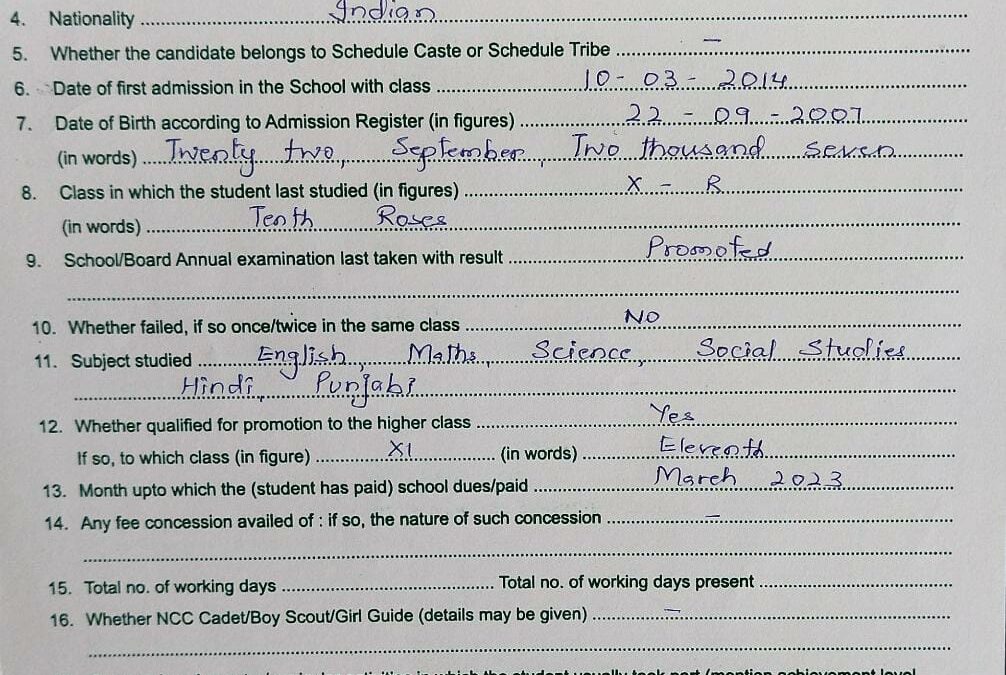 4. Nationality ........ Indian ........
5. Whether the candidate belongs to Schedule Caste or Schedule Tribe ........ – ........
6. Date of first admission in the School with class ........ 10-03-2014 ........
7. Date of Birth according to Admission Register (in figures) ........ 22-09-2007 ........
(in words) ........ Twenty two, September, Two thousand seven ........
8. Class in which the student last studied (in figures) ........ X - R ........
(in words) ........ Tenth Roses ........
9. School/Board Annual examination last taken with result ........ Promoted ........
........
10. Whether failed, if so once/twice in the same class ........ NO ........
11. Subject studied ........ English, Maths, Science, Social Studies ........
Hindi, Punjabi ........
12. Whether qualified for promotion to the higher class ........ Yes ........
If so, to which class (in figure) ........ XI ........ (in words) ........ Eleventh ........
13. Month upto which the (student has paid) school dues/paid ........ March 2023 ........
14. Any fee concession availed of : if so, the nature of such concession ........ – ........
........
15. Total no. of working days ........ Total no. of working days present ........
16. Whether NCC Cadet/Boy Scout/Girl Guide (details may be given) ........ – ........
........
in which the student usually took part (mention achievement level